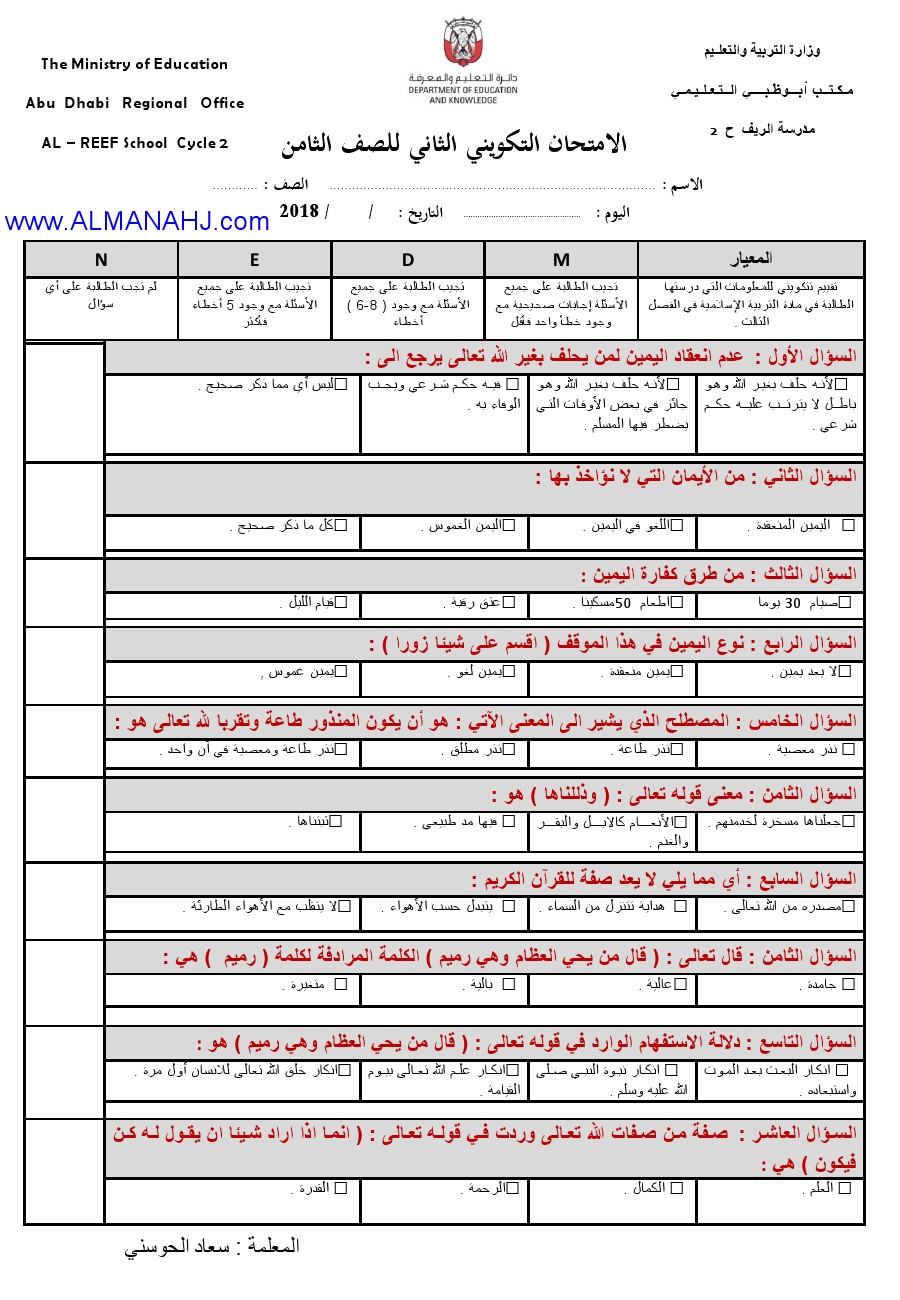 وزارة التربية والتعليم
مكتب أبوظبي التعليمي
مدرسة الريف ح 2
دائرة التعليم والمعرفة
DEPARTMENT OF EDUCATION
AND KNOWLEDGE
The Ministry of Education
Abu Dhabi Regional Office
AL – REEF School Cycle 2
الامتحان التكويني الثاني للصف الثامن
الاسم : .................... الصف : ............
اليوم : .................... التاريخ : / / 2018
www.ALMANAHJ.com
المعيار M D E N
تقييم تكويني للمعلومات التي درستها
الطالبة في مادة التربية الإسلامية في الفصل
الثالث .
تجيب الطالبة على جميع
الأسئلة إجابات صحيحية مع
وجود خطأ واحد فأقل
تجيب الطالبة على جميع
الأسئلة مع وجود ( 8-6 )
أخطاء
تجيب الطالبة على جميع
الأسئلة مع وجود 5 أخطاء
فأكثر
لم تجب الطالبة على أي
سؤال
السؤال الأول : عدم انعقاد اليمين لمن يحلف بغير الله تعالى يرجع الى :
□لأنه حلف بغير الله وهو
باطل لا يترتب عليه حكم
شرعي .
□لأنه حلف بغير الله وهو
جائز في بعض الأوقات التي
يضطر فيها المسلم .
□ فيه حكم شرعي ويجب
الوفاء به .
□ليس أي مما ذكر صحيح .
السؤال الثاني : من الأيمان التي لا نؤاخذ بها :
□ اليمين المنعقدة .
□اللغو في اليمين .
□اليمن الغموس .
□كل ما ذكر صحيح .
السؤال الثالث : من طرق كفارة اليمين :
□صيام 30 يوما
□اطعام 50مسكينا .
□عتق رقبة .
□قيام الليل .
السؤال الرابع : نوع اليمين في هذا الموقف ( اقسم على شيئا زورا ) :
□لا يعد يمين .
□يمين منعقدة .
□يمين لغو .
□يمين غموس ,
السؤال الخامس : المصطلح الذي يشير الى المعنى الآتي : هو أن يكون المنذور طاعة وتقربا لله تعالى هو :
□ نذر معصية .
□نذر طاعة .
□نذر مطلق .
□نذر طاعة ومعصية في أن واحد .
السؤال الثامن : معنى قوله تعالى : ( وذللناها ) هو :
□جعلناها مسخرة لخدمتهم .
□الأنعام كالابل والبقر
والغنم .
□ فيها مد طبيعي .
□ ثبتناها .
السؤال السابع : أي مما يلي لا يعد صفة للقرآن الكريم :
□مصدره من الله تعالى .
□ هداية تتنزل من السماء .
□ يتبدل حسب الأهواء .
□لا يتقلب مع الأهواء الطارئة .
السؤال الثامن : قال تعالى : ( قال من يحي العظام وهي رميم ) الكلمة المرادفة لكلمة ( رميم ) هي :
□ جامدة .
□عالية .
□ بالية .
□ متغيرة .
السؤال التاسع : دلالة الاستفهام الوارد في قوله تعالى : ( قال من يحي العظام وهي رميم ) هو :
□ انكار البعث بعد الموت
واستبعاده .
□ انكار نبوة النبي صلى
الله عليه وسلم .
□انكار علم الله تعالى بيوم
القيامة .
□انكار خلق الله تعالى للانسان أول مرة .
السؤال العاشر : صفة من صفات الله تعالى وردت في قوله تعالى : ( انما اذا اراد شيئا ان يقول له كن
فيكون ) هي :
□ العلم .
□ الكمال .
□الرحمة .
□ القدرة .
المعلمة : سعاد الحوسني